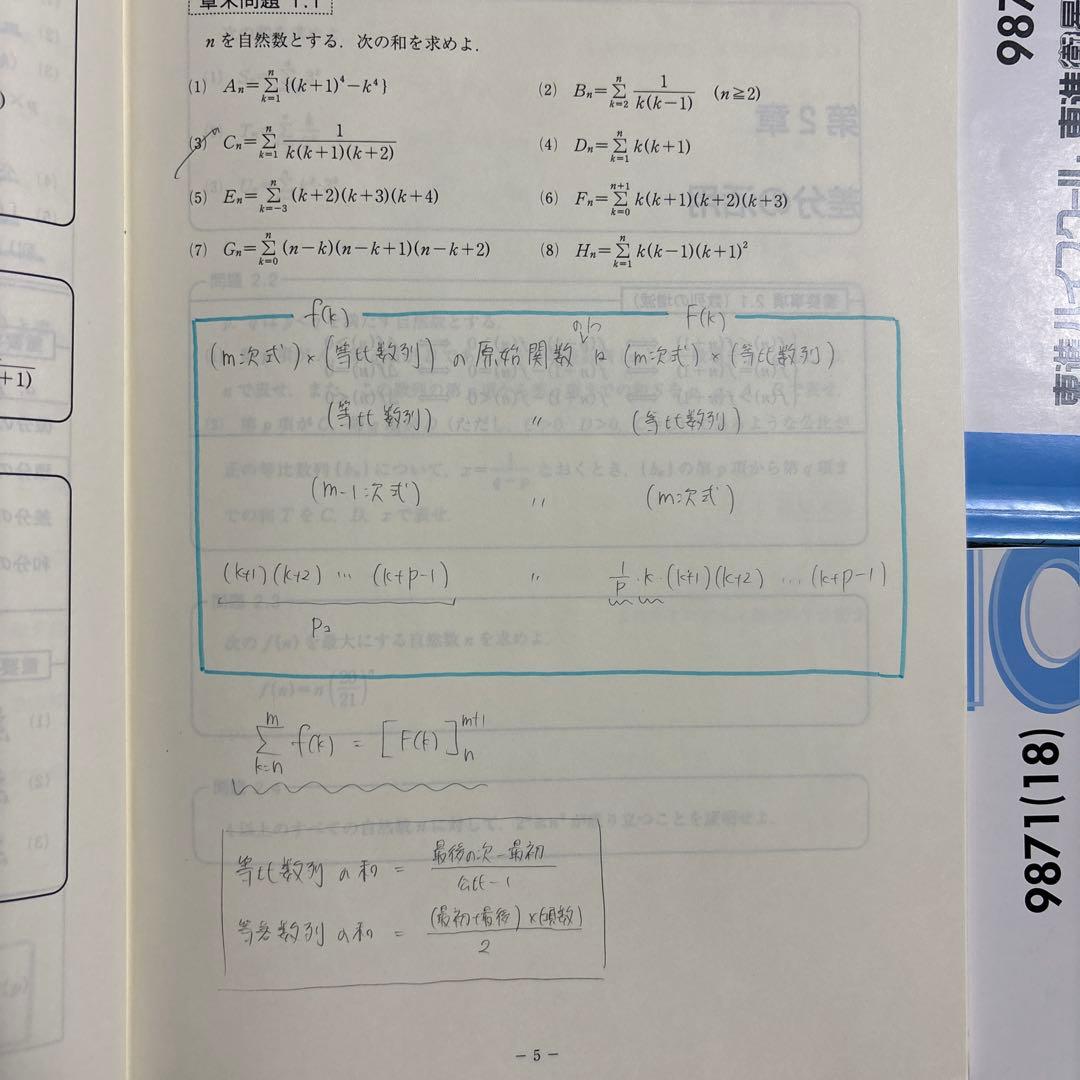 章末問題 1.1
n を自然数とする．次の和を求めよ．
(1) Aₙ=∑ₖ₌₁ⁿ {(k+1)⁴−k⁴}
(2) Bₙ=∑ₖ₌₂ⁿ 1/k(k−1) (n≧2)
(3) Cₙ=∑ₖ₌₁ⁿ 1/k(k+1)(k+2)
(4) Dₙ=∑ₖ₌₁ⁿ k(k+1)
(5) Eₙ=∑ₖ₌₋₃ⁿ (k+2)(k+3)(k+4)
(6) Fₙ=∑ₖ₌₀ⁿ⁺¹ k(k+1)(k+2)(k+3)
(7) Gₙ=∑ₖ₌₀ⁿ (n−k)(n−k+1)(n−k+2)
(8) Hₙ=∑ₖ₌₁ⁿ k(k−1)(k+1)²
f(k) F(k)
(m次式)×(等比数列) の 原始関数 は (m次式)×(等比数列)
(等比数列) 〃 (等比数列)
(m-1次式) 〃 (m次式)
(k+1)(k+2) … (k+p-1) 〃 1/p・k・(k+1)(k+2) …(k+p-1)
∑ₖ₌ₙᵐ f(k) = [F(k)]ₙᵐ⁺¹
等比数列 の和 = 最後の次−最初/公比−1
等差数列 の和 = (最初+最後)×(項数)/2
− 5 −
9871(18)
987